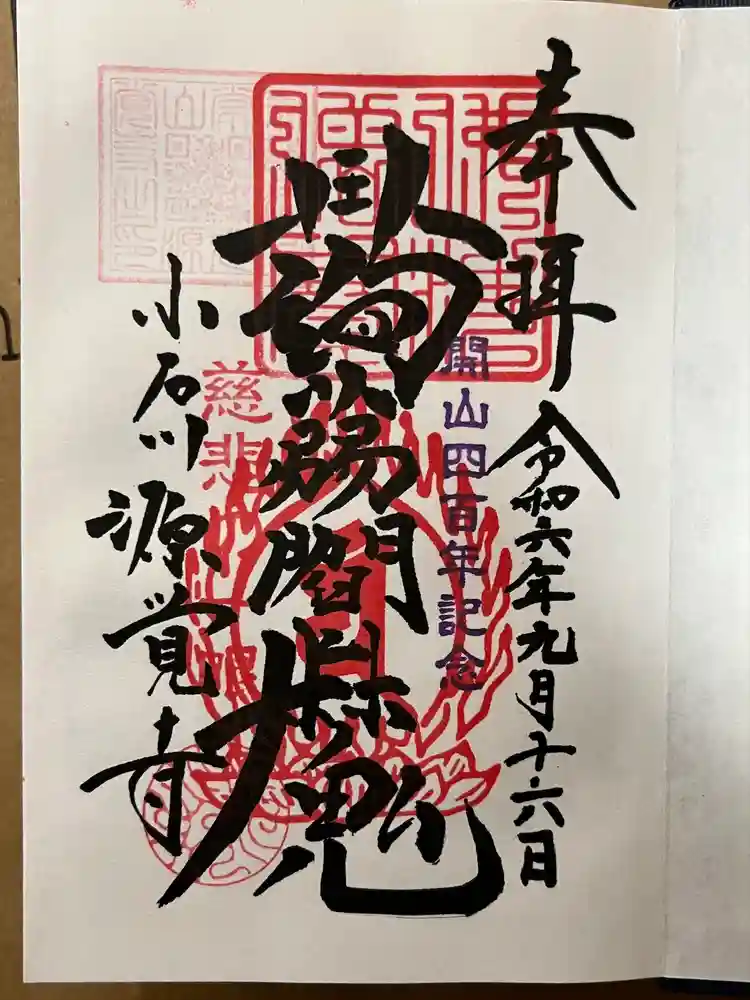 奉拝
令和六年九月十六日
開山四百年記念
蒟蒻閻魔
慈悲
小石川源覚寺